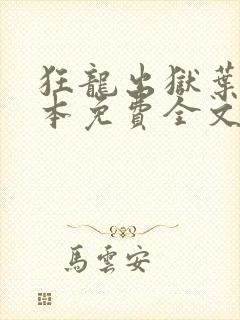 狂龍出獄葉
本免費全文
馬雲安